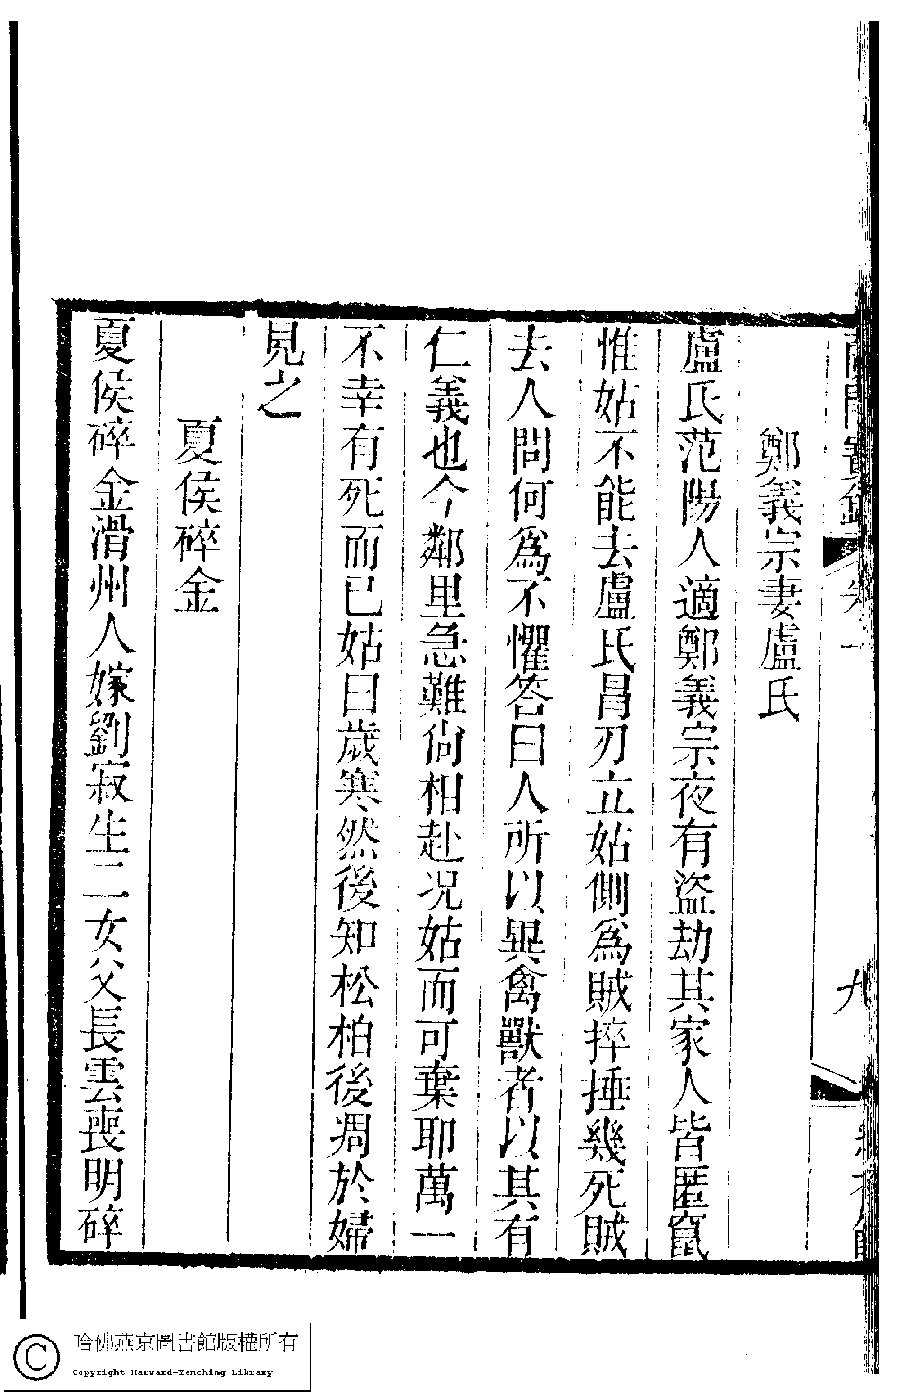 鄭義宗妻盧氏
盧氏范陽人適鄭義宗夜有盜劫其家人皆匿竄
惟姑不能去盧氏冒刃立姑側爲賊捽捶幾死賊
去人問何爲不懼答曰人所以異禽獸者以其有
仁義也今鄰里急難尙相赴况姑而可棄耶萬一
不幸有死而已姑曰歲寒然後知松柏後凋於婦
見之
夏侯碎金
夏侯碎金滑州人嫁劉寂生二女父長雲喪明碎
九
哈佛燕京圖書館版權所有
Copyright Harvard-Yenching Library